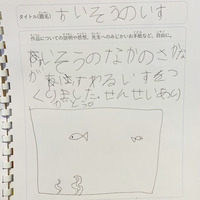 タイトル(題名) すいそうのいす
作品についての説明や感想、先生へのみじかいお手紙など、自由に。
すいそうのなかのさかな
が すわるいすをつ
くりました。せんせいあり
がとう。